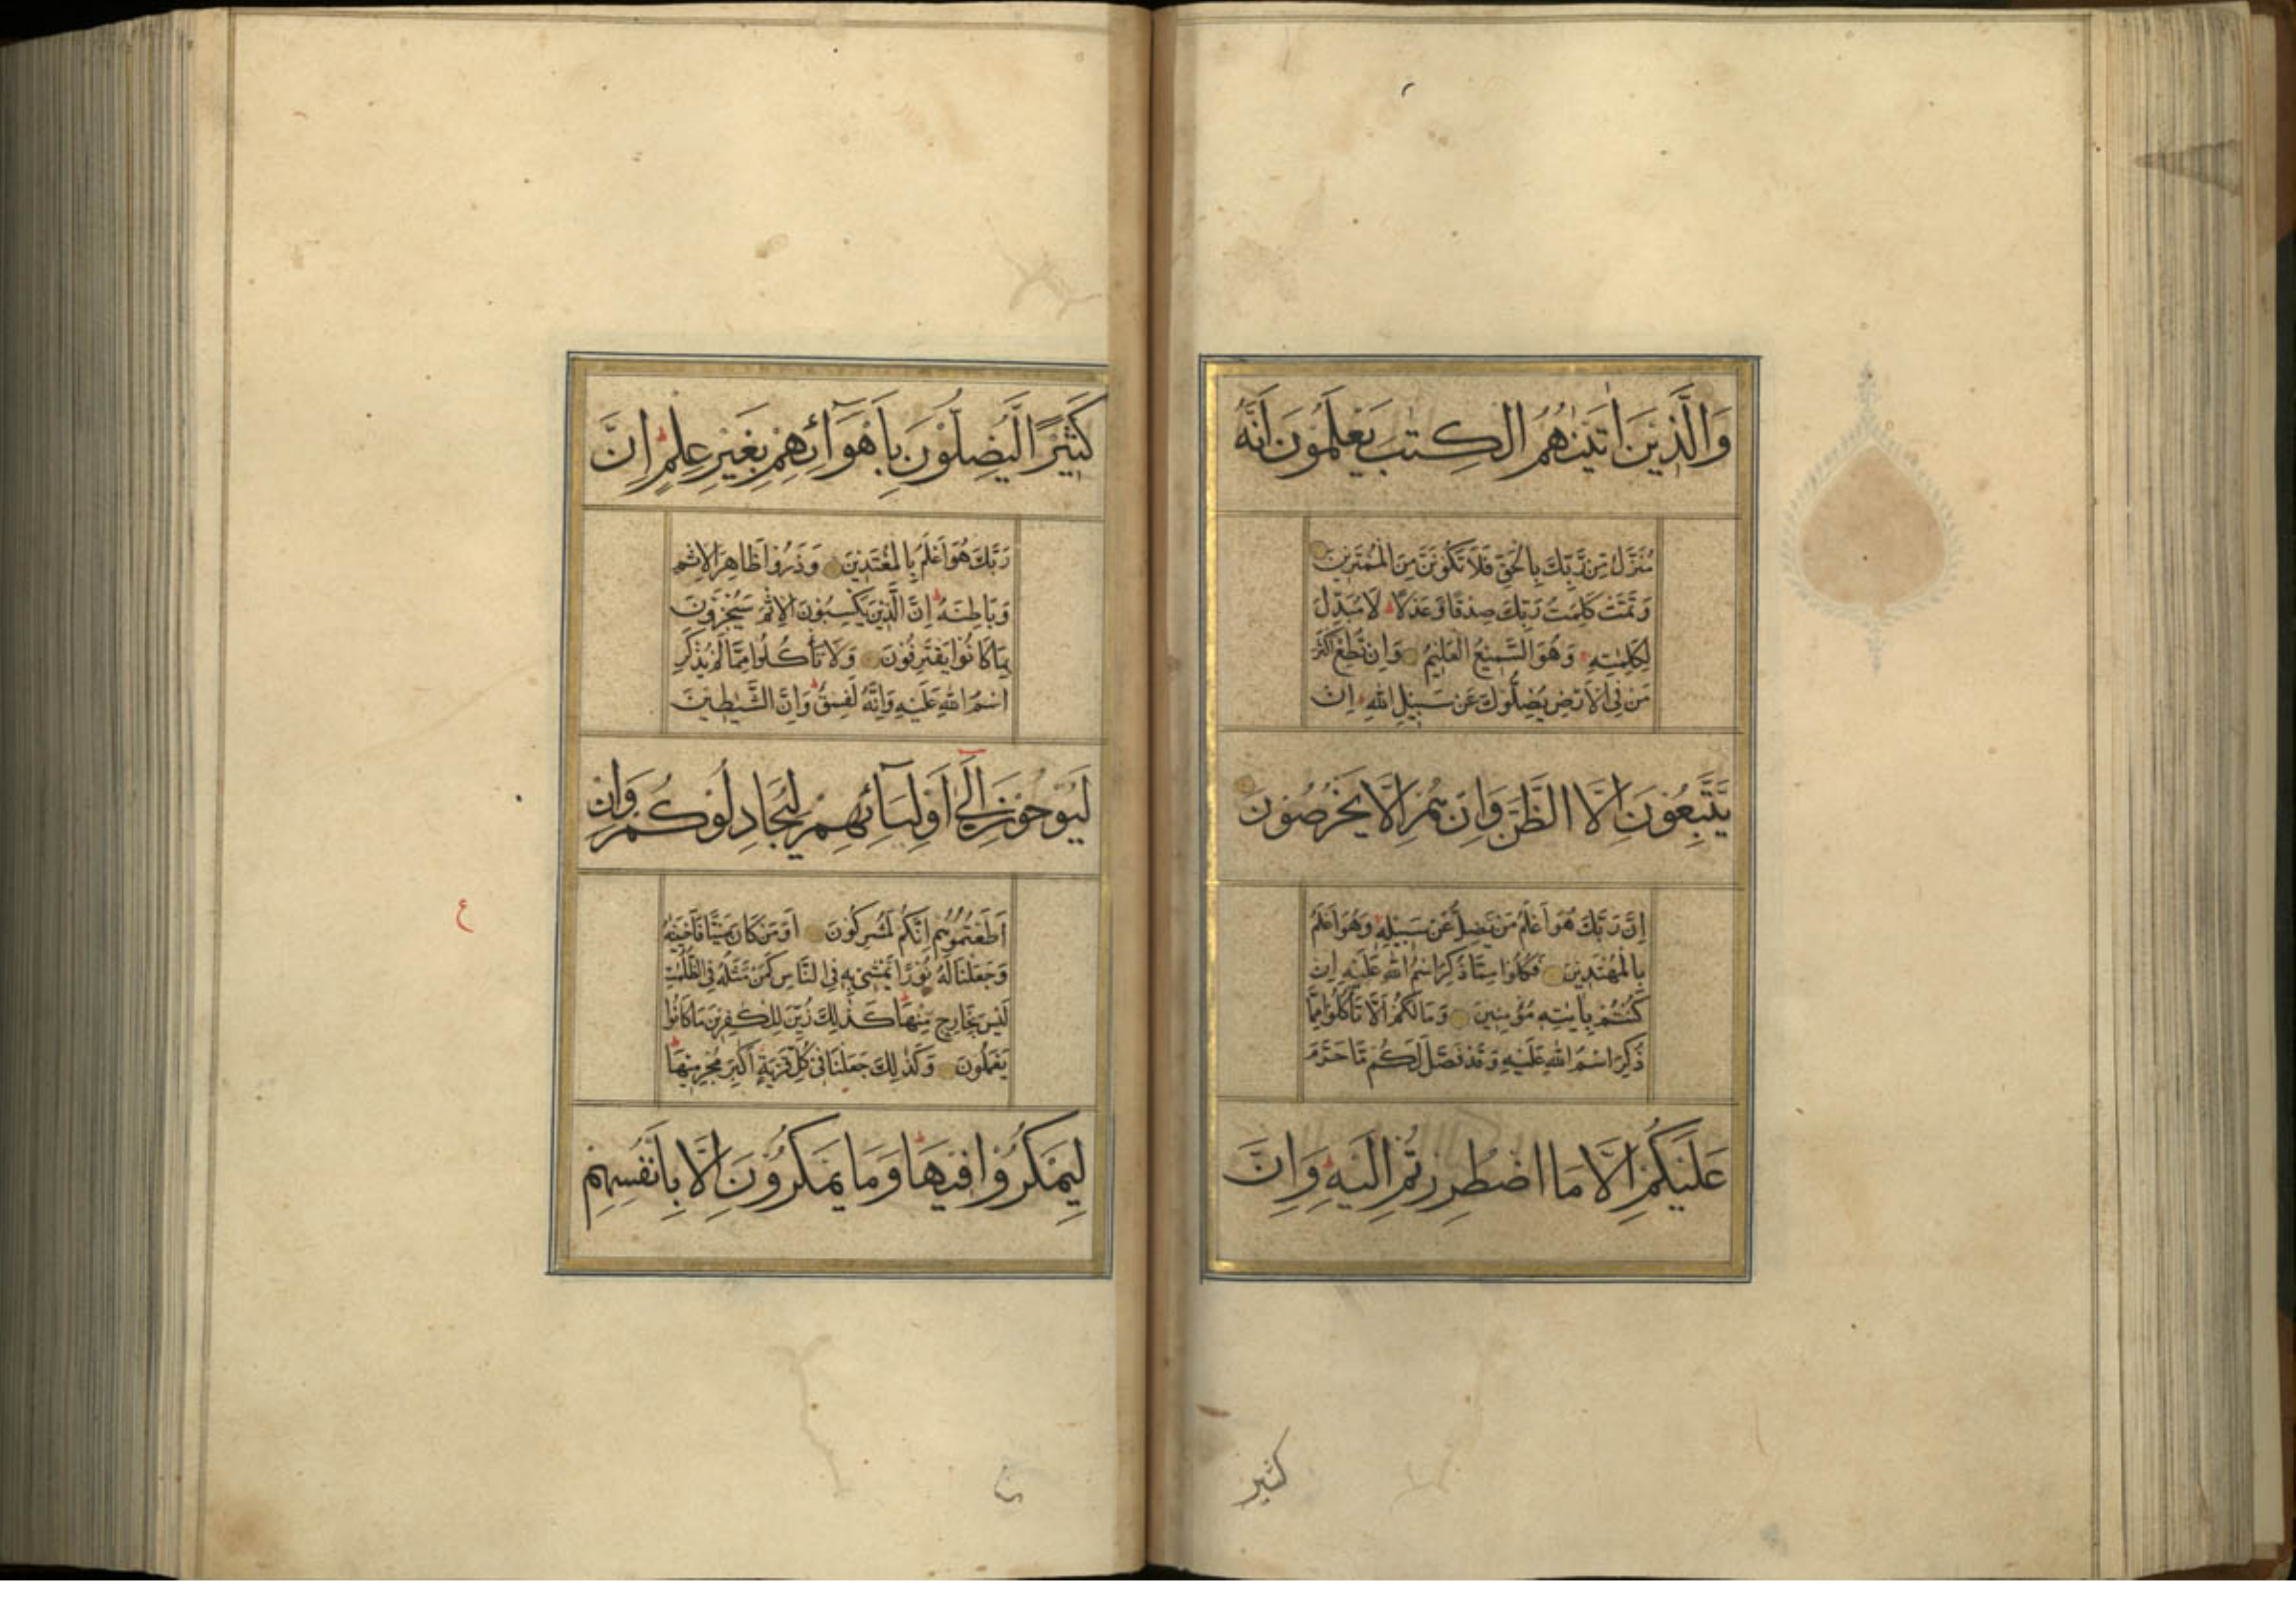 وَالَّذِيْنَ اٰتَيْنٰهُمُ الْكِتٰبَ يَعْلَمُوْنَ اَنَّهٗ
مُنَزَّلٌ مِّنْ رَّبِّكَ بِالْحَقِّ فَلَا تَكُوْنَنَّ مِنَ الْمُمْتَرِيْنَ
وَتَمَّتْ كَلِمَتُ رَبِّكَ صِدْقًا وَّعَدْلًا ط لَا مُبَدِّلَ
لِكَلِمٰتِهٖ وَهُوَ السَّمِيْعُ الْعَلِيْمُ وَاِنْ تُطِعْ اَكْثَرَ
مَنْ فِي الْاَرْضِ يُضِلُّوْكَ عَنْ سَبِيْلِ اللهِ ط اِنْ
يَّتَّبِعُوْنَ اِلَّا الظَّنَّ وَاِنْ هُمْ اِلَّا يَخْرُصُوْنَ
اِنَّ رَبَّكَ هُوَ اَعْلَمُ مَنْ يَّضِلُّ عَنْ سَبِيْلِهٖ وَهُوَ اَعْلَمُ
بِالْمُهْتَدِيْنَ فَكُلُوْا مِمَّا ذُكِرَ اسْمُ اللهِ عَلَيْهِ اِنْ
كُنْتُمْ بِاٰيٰتِهٖ مُؤْمِنِيْنَ وَمَا لَكُمْ اَلَّا تَأْكُلُوْا مِمَّا
ذُكِرَ اسْمُ اللهِ عَلَيْهِ وَقَدْ فَصَّلَ لَكُمْ مَّا حَرَّمَ
عَلَيْكُمْ اِلَّا مَا اضْطُرِرْتُمْ اِلَيْهِ ط وَاِنَّ
كثير
كَثِيْرًا لَّيُضِلُّوْنَ بِاَهْوَآئِهِمْ بِغَيْرِ عِلْمٍ ط اِنَّ
رَبَّكَ هُوَ اَعْلَمُ بِالْمُعْتَدِيْنَ وَذَرُوْا ظَاهِرَ الْاِثْمِ
وَبَاطِنَهٗ ط اِنَّ الَّذِيْنَ يَكْسِبُوْنَ الْاِثْمَ سَيُجْزَوْنَ
بِمَا كَانُوْا يَقْتَرِفُوْنَ وَلَا تَأْكُلُوْا مِمَّا لَمْ يُذْكَرِ
اسْمُ اللهِ عَلَيْهِ وَاِنَّهٗ لَفِسْقٌ ط وَاِنَّ الشَّيٰطِيْنَ
لَيُوْحُوْنَ اِلٰٓى اَوْلِيَآئِهِمْ لِيُجَادِلُوْكُمْ وَاِنْ
اَطَعْتُمُوْهُمْ اِنَّكُمْ لَمُشْرِكُوْنَ اَوَمَنْ كَانَ مَيْتًا فَاَحْيَيْنٰهُ
وَجَعَلْنَا لَهٗ نُوْرًا يَّمْشِيْ بِهٖ فِي النَّاسِ كَمَنْ مَّثَلُهٗ فِي الظُّلُمٰتِ
لَيْسَ بِخَارِجٍ مِّنْهَا ط كَذٰلِكَ زُيِّنَ لِلْكٰفِرِيْنَ مَا كَانُوْا
يَعْمَلُوْنَ وَكَذٰلِكَ جَعَلْنَا فِيْ كُلِّ قَرْيَةٍ اَكٰبِرَ مُجْرِمِيْهَا
لِيَمْكُرُوْا فِيْهَا ط وَمَا يَمْكُرُوْنَ اِلَّا بِاَنْفُسِهِمْ
ع